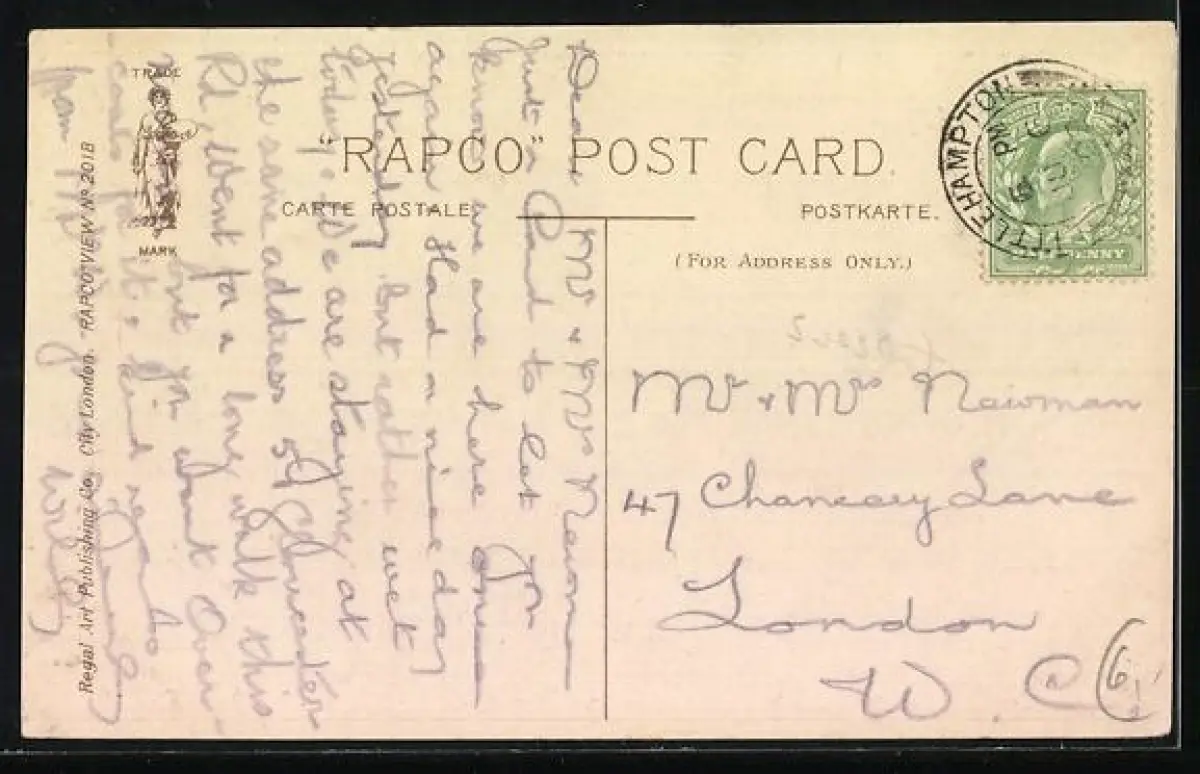 "RAPCO" POST CARD.
CARTE POSTALE
POSTKARTE.
(FOR ADDRESS ONLY.)
TRADE
MARK
Regal Art Publishing Co., City London. "RAPCO" VIEW No. 2018
LITTLEHAMPTON
PM
PENNY
Mr & Mrs Newman
47 Chancery Lane
London
W. C.
Dear Mr & Mrs Newman
Just a Card to let you
know we are here once
again Had a nice day
yesterday but rather wet
today. We are staying at
the same address 59 Gloucester
Rd, Went for a long walk this
dont you want Over-
coats for it, kind regards
from
Willy
(6